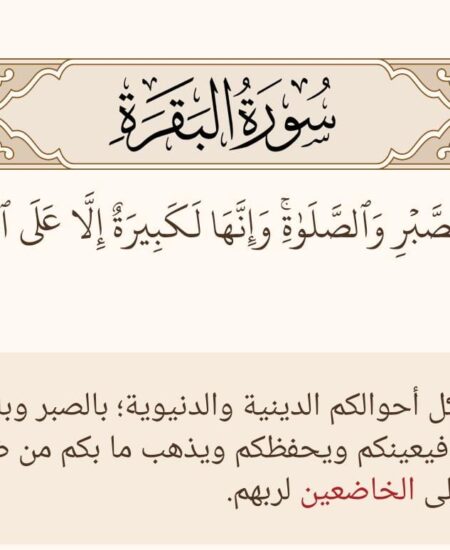 سُورَةُ البَقَرَةِ
وَٱلصَّلَوٰةِۚ وَإِنَّهَا لَكَبِيرَةٌ إِلَّا عَلَى
أحوالكم الدينية والدنيوية؛ بالصبر
فيعينكم ويحفظكم ويذهب ما بكم من
الخاضعين لربهم.